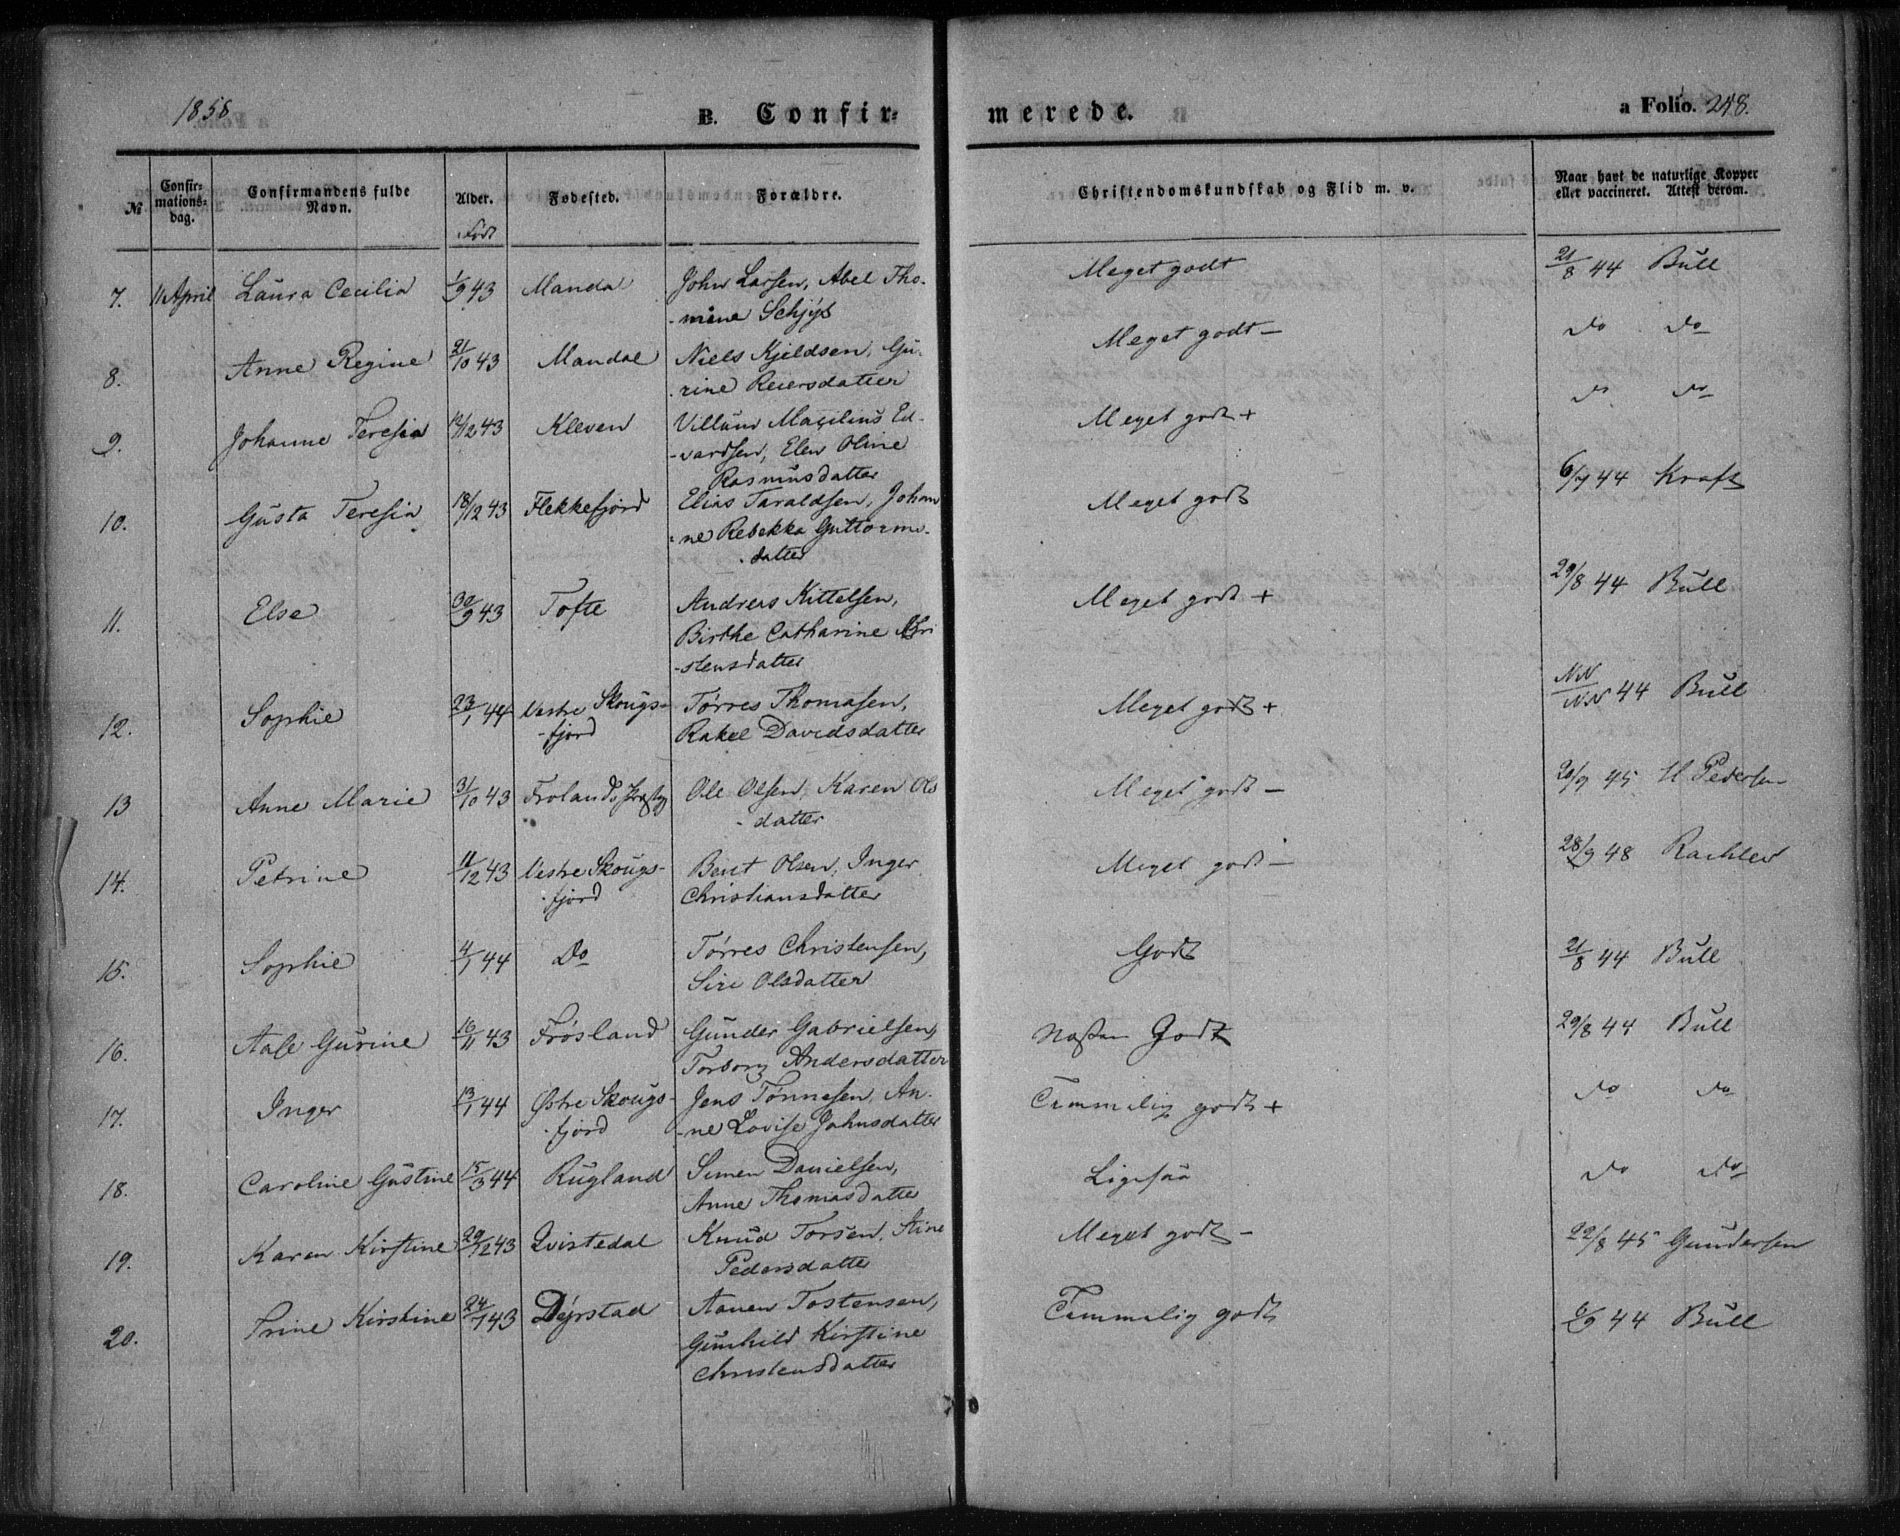 1858
B. Confirmerede.
a Folio. 248.
№
Confirmationsdag.
Confirmandens fulde Navn.
Alder.
Født
Fødested.
Forældre.
Christendomskundskab og Flid m. v.
Naar havt de naturlige Kopper eller vaccineret. Attest derom.
7. 11 April Laura Cecilia 1/9 43 Mandal John Larsen, Abel Tho- Meget godt 21/8 44 Bull
-mine
8. Anne Regine 21/10 43 Mandal Niels Kjeldsen, Gu- Meget godt - do do
-rine Reiersdatter
9. Johanne Teresia 43 Kleven Villum Ed- Meget godt + do do
-vardsen, Elen Oline
Rasmusdatter
10. Gusta Teresia 18/12 43 Flekkefjord Elias Taraldsen, Johan Meget godt 6/9 44 Kraft
-ne Rebekka Guttorms-
-datter
11. Else 30/9 43 Tofte Andreas Kittelsen, Meget godt + 29/8 44 Bull
Birthe Catharine Chri
-stensdatter
12. Sophie 23/1 44 Vestre Skougs- Tørres Thomasen, Meget godt + NN/NN 44 Bull
-fjord Rakel Davidsdatter
13 Anne Marie 31/10 43 Frolands Præstg Ole Olsen, Karen Ols Meget godt - 20/9 45 H Pedersen
-datter
14. Petrine 11/12 43 Vestre Skougs- Bent Olsen, Inger Meget godt - 28/9 48
-fjord Christiansdatter
15. Sophie 4/1 44 Do Tørres Christensen, Godt 21/8 44 Bull
Siri Olsdatter
16. Aase Gurine 16/11 43 Frøsland Gunder Gabrielsen, Næsten Godt 29/8 44 Bull
Torborg Andersdatter
17. Inger 13/1 44 Østre Skougs- Jens Tønnesen, An- Temmelig godt + do do
-fjord -ne Lovise Johnsdatter
18. Caroline Gustine 15/3 44 Rugland Simen Danielsen, Ligesaa do do
Anne Thomasdatter
19. Karen Kirstine 29/12 43 Qvistedal Knud Torsen, Stine Meget godt - 22/8 45 Gundersen
Pedersdatter
20. Trine Kirstine 43 Døyrstad Aanen Tostensen, Temmelig godt 6/9 44 Bull
Gunhild Kirstine
Christensdatter